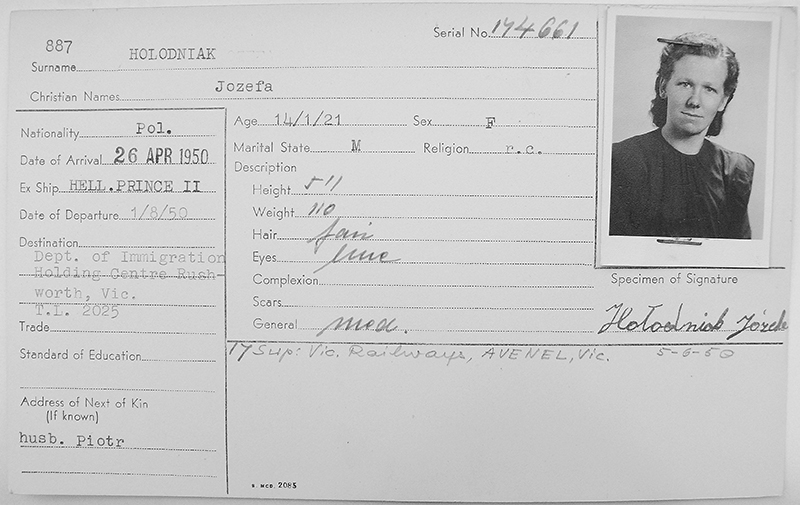 887 HOLODNIAK Serial No. 174661
Surname
Jozefa
Christian Names
Nationality Pol.
Date of Arrival 26 APR 1950
Ex Ship HELL.PRINCE II
Date of Departure 1/8/50
Destination
Dept. of Immigration
Holding Centre Rush-
worth, Vic.
T.L. 2025
Trade
Standard of Education
Address of Next of Kin
(If known)
husb. Piotr
Age 14/1/21 Sex F
Marital State M Religion r.c.
Description
Height 5 11
Weight 110
Hair fair
Eyes
Complexion
Scars
General med.
Specimen of Signature
Hołodniak Józefa
17 Sup: Vic. Railways, AVENEL, Vic. 5-6-50
S. MCD. 2085